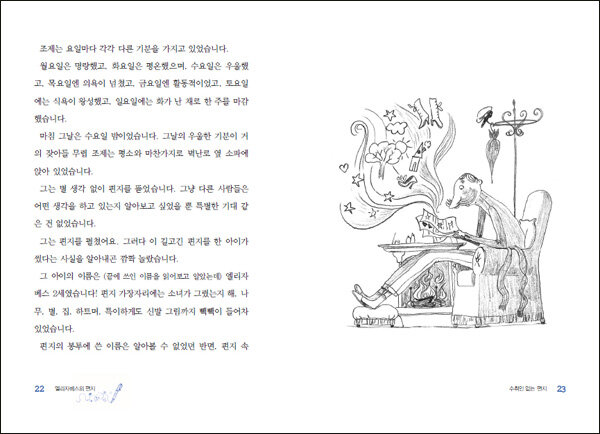 조제는 요일마다 각각 다른 기분을 가지고 있었습니다.
월요일은 명랑했고, 화요일은 평온했으며, 수요일은 우울했
고, 목요일엔 의욕이 넘쳤고, 금요일엔 활동적이었고, 토요일
에는 식욕이 왕성했고, 일요일에는 화가 난 채로 한 주를 마감
했습니다.
마침 그날은 수요일 밤이었습니다. 그날의 우울한 기분이 거
의 잦아들 무렵 조제는 평소와 마찬가지로 벽난로 옆 소파에
앉아 있었습니다.
그는 별 생각 없이 편지를 뜯었습니다. 그냥 다른 사람들은
어떤 생각을 하고 있는지 알아보고 싶었을 뿐 특별한 기대 같
은 건 없었습니다.
그는 편지를 펼쳤어요. 그러다 이 길고긴 편지를 한 아이가
썼다는 사실을 알아내곤 깜짝 놀랐습니다.
그 아이의 이름은 (끝에 쓰인 이름을 읽어보고 알았는데) 엘리자
베스 2세였습니다! 편지 가장자리에는 소녀가 그렸는지 해, 나
무, 별, 집, 하트며, 특이하게도 신발 그림까지 빽빽이 들어차
있었습니다.
편지의 봉투에 쓴 이름은 알아볼 수 없었던 반면, 편지 속
22 엘리자베스의 편지
수취인 없는 편지 23